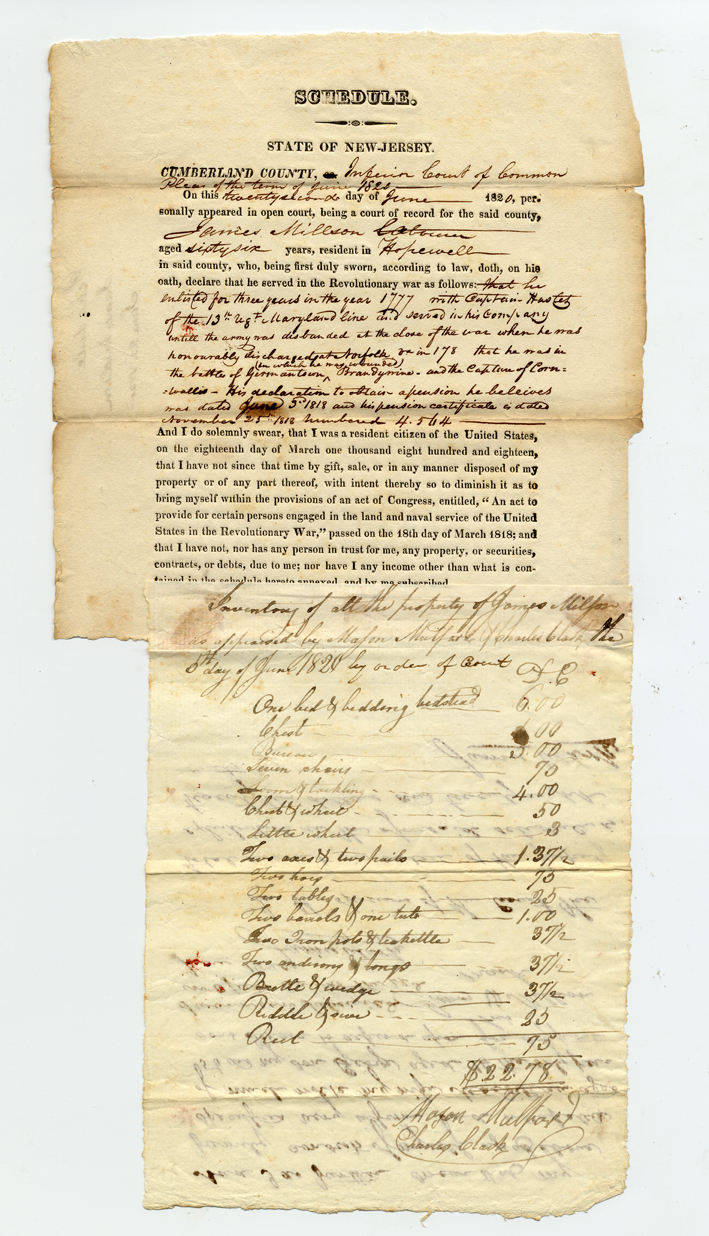 SCHEDULE.
STATE OF NEW-JERSEY.
CUMBERLAND COUNTY, ss. Inferior Court of Common
Pleas of the term of June 1820
On this twentysecond day of June 1820, per-
sonally appeared in open court, being a court of record for the said county,
James Millson
aged sixtysix years, resident in Hopewell
in said county, who, being first duly sworn, according to law, doth, on his
oath, declare that he served in the Revolutionary war as follows: that he
enlisted for three years in the year 1777 with Captain
of the 13th Maryland line and served in his Company
untill the army was disbanded at the close of the war when he was
honourably discharged at Norfolk in 178 that he was in
(in which he was wounded)
the battle of Girmantown, Brandywine - and the Capture of Corn-
=wallis - His declaration to obtain a pension he beleives
was dated June 5th 1818 and his pension certificate is dated
November 25th 1818 Numbered 4.564
And I do solemnly swear, that I was a resident citizen of the United States,
on the eighteenth day of March one thousand eight hundred and eighteen,
that I have not since that time by gift, sale, or in any manner disposed of my
property or of any part thereof, with intent thereby so to diminish it as to
bring myself within the provisions of an act of Congress, entitled, “ An act to
provide for certain persons engaged in the land and naval service of the United
States in the Revolutionary War,” passed on the 18th day of March 1818; and
that I have not, nor has any person in trust for me, any property, or securities,
contracts, or debts, due to me; nor have I any income other than what is con-
tained in the schedule hereto annexed, and by me subscribed
Inventory of all the property of James Milson
as appraised by Mason Mulford & Charles Clark, the
5th day of June 1820 by order of Court
D. C
One bed & bedding bedstead 6.00
Chest 00
Bureau 5.00
Seven chairs 75
Loom & tackling 4.00
Chest & wheel 50
Little wheel 3
Two axes & two pails 1.37½
Two hoes 75
Two tables 25
Two barrels & one tub 1.00
Two Iron pots & teakettle 37½
Two andirons & tongs 37½
Beetle & wedge 37½
Riddle & sive 25
Reel 75
$22.78
Mason Mulford
Charles Clark